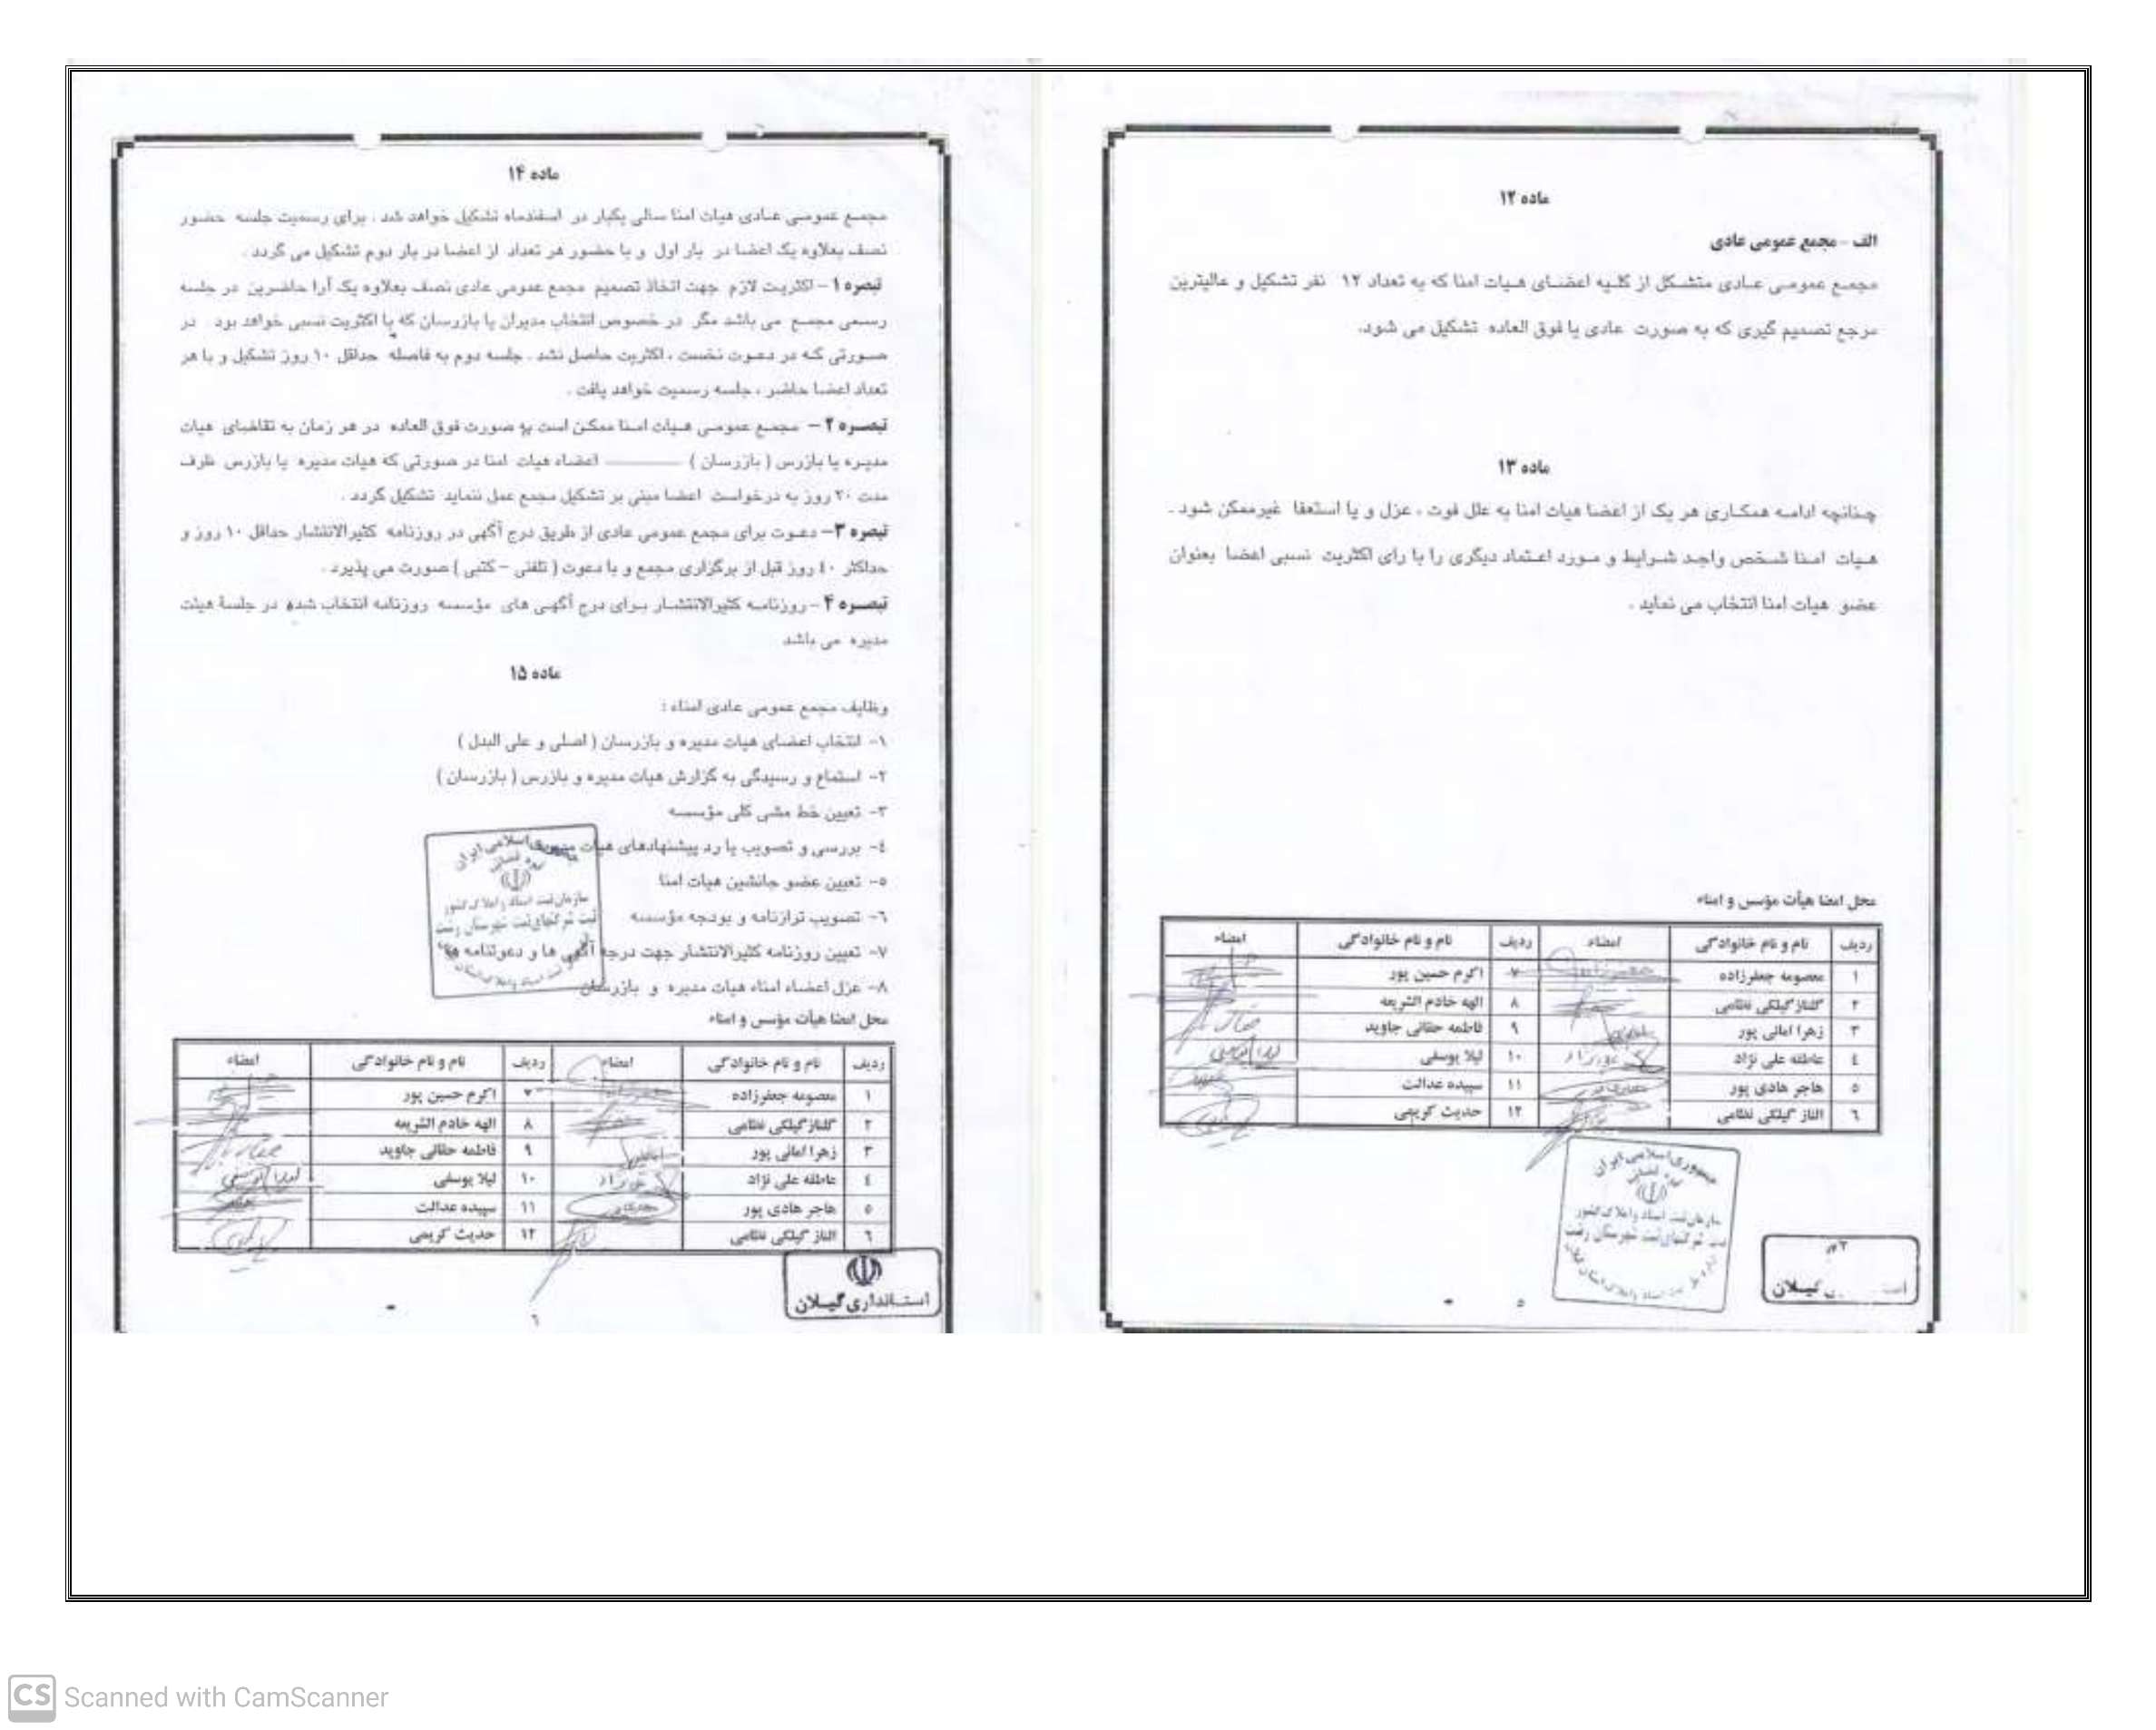 ماده ۱۲
الف - مجمع عمومی عادی
مجمع عمومی عادی متشکل از کلیه اعضای هیات امنا که به تعداد ۱۲ نفر تشکیل و عالیترین
مرجع تصمیم گیری که به صورت عادی یا فوق العاده تشکیل می شود.
ماده ۱۳
چنانچه ادامه همکاری هر یک از اعضا هیات امنا به علل فوت ، عزل و یا استعفا غیرممکن شود .
هیات امنا شخص واجد شرایط و مورد اعتماد دیگری را با رای اکثریت نسبی اعضا بعنوان
عضو هیات امنا انتخاب می نماید .
محل امضا هیأت مؤسس و امناء
ردیف نام و نام خانوادگی امضاء ردیف نام و نام خانوادگی امضاء
۱ معصومه جعفرزاده ۷ اکرم حسین پور
۲ گلناز گیلکی نظامی ۸ الهه خادم الشریعه
۳ زهرا امانی پور ۹ فاطمه حقانی جاوید
٤ عاطفه علی نژاد ۱۰ لیلا یوسفی
٥ هاجر هادی پور ۱۱ سپیده عدالت
٦ الناز گیلکی نظامی ۱۲ حدیث کریمی
جمهوری اسلامی ایران
قوه قضائیه
سازمان ثبت اسناد و املاک کشور
ثبت شرکتهای ثبت شهرستان رشت
گیلان
٥
ماده ۱۴
مجمع عمومی عادی هیات امنا سالی یکبار در اسفندماه تشکیل خواهد شد . برای رسمیت جلسه حضور
نصف بعلاوه یک اعضا در بار اول و با حضور هر تعداد از اعضا در بار دوم تشکیل می گردد .
تبصره ۱ – اکثریت لازم جهت اتخاذ تصمیم مجمع عمومی عادی نصف بعلاوه یک آرا حاضرین در جلسه
رسمی مجمع می باشد مگر در خصوص انتخاب مدیران یا بازرسان که با اکثریت نسبی خواهد بود در
صورتی که در دعوت نخست ، اکثریت حاصل نشد . جلسه دوم به فاصله حداقل ۱۰ روز تشکیل و با هر
تعداد اعضا حاضر ، جلسه رسمیت خواهد یافت .
تبصره ۲ – مجمع عمومی هیات امنا ممکن است به صورت فوق العاده در هر زمان به تقاضای هیات
مدیره یا بازرس ( بازرسان ) ـــــــــ اعضاء هیات امنا در صورتی که هیات مدیره یا بازرس ظرف
مدت ۲۰ روز به درخواست اعضا مبنی بر تشکیل مجمع عمل ننماید تشکیل گردد .
تبصره ۳– دعوت برای مجمع عمومی عادی از طریق درج آگهی در روزنامه کثیرالانتشار حداقل ۱۰ روز و
حداکثر ٤۰ روز قبل از برگزاری مجمع و با دعوت ( تلفنی – کتبی ) صورت می پذیرد .
تبصره ۴ – روزنامه کثیرالانتشار برای درج آگهی های مؤسسه روزنامه انتخاب شده در جلسهٔ هیئت
مدیره می باشد
ماده ۱۵
وظایف مجمع عمومی عادی امناء :
۱- انتخاب اعضای هیات مدیره و بازرسان ( اصلی و علی البدل )
۲- استماع و رسیدگی به گزارش هیات مدیره و بازرس ( بازرسان )
۳- تعیین خط مشی کلی مؤسسه
٤- بررسی و تصویب یا رد پیشنهادهای هیات مدیره
٥- تعیین عضو جانشین هیات امنا
٦- تصویب ترازنامه و بودجه مؤسسه
۷- تعیین روزنامه کثیرالانتشار جهت درجه آگهی ها و دعوتنامه ها
۸- عزل اعضاء امناء هیات مدیره و بازرسان
جمهوری اسلامی ایران
قوه قضائیه
سازمان ثبت اسناد و املاک کشور
ثبت شرکتهای ثبت شهرستان رشت
محل امضا هیأت مؤسس و امناء
ردیف نام و نام خانوادگی امضاء ردیف نام و نام خانوادگی امضاء
۱ معصومه جعفرزاده ۷ اکرم حسین پور
۲ گلناز گیلکی نظامی ۸ الهه خادم الشریعه
۳ زهرا امانی پور ۹ فاطمه حقانی جاوید
٤ عاطفه علی نژاد ۱۰ لیلا یوسفی
٥ هاجر هادی پور ۱۱ سپیده عدالت
٦ الناز گیلکی نظامی ۱۲ حدیث کریمی
استانداری گیلان
٦
CS Scanned with CamScanner